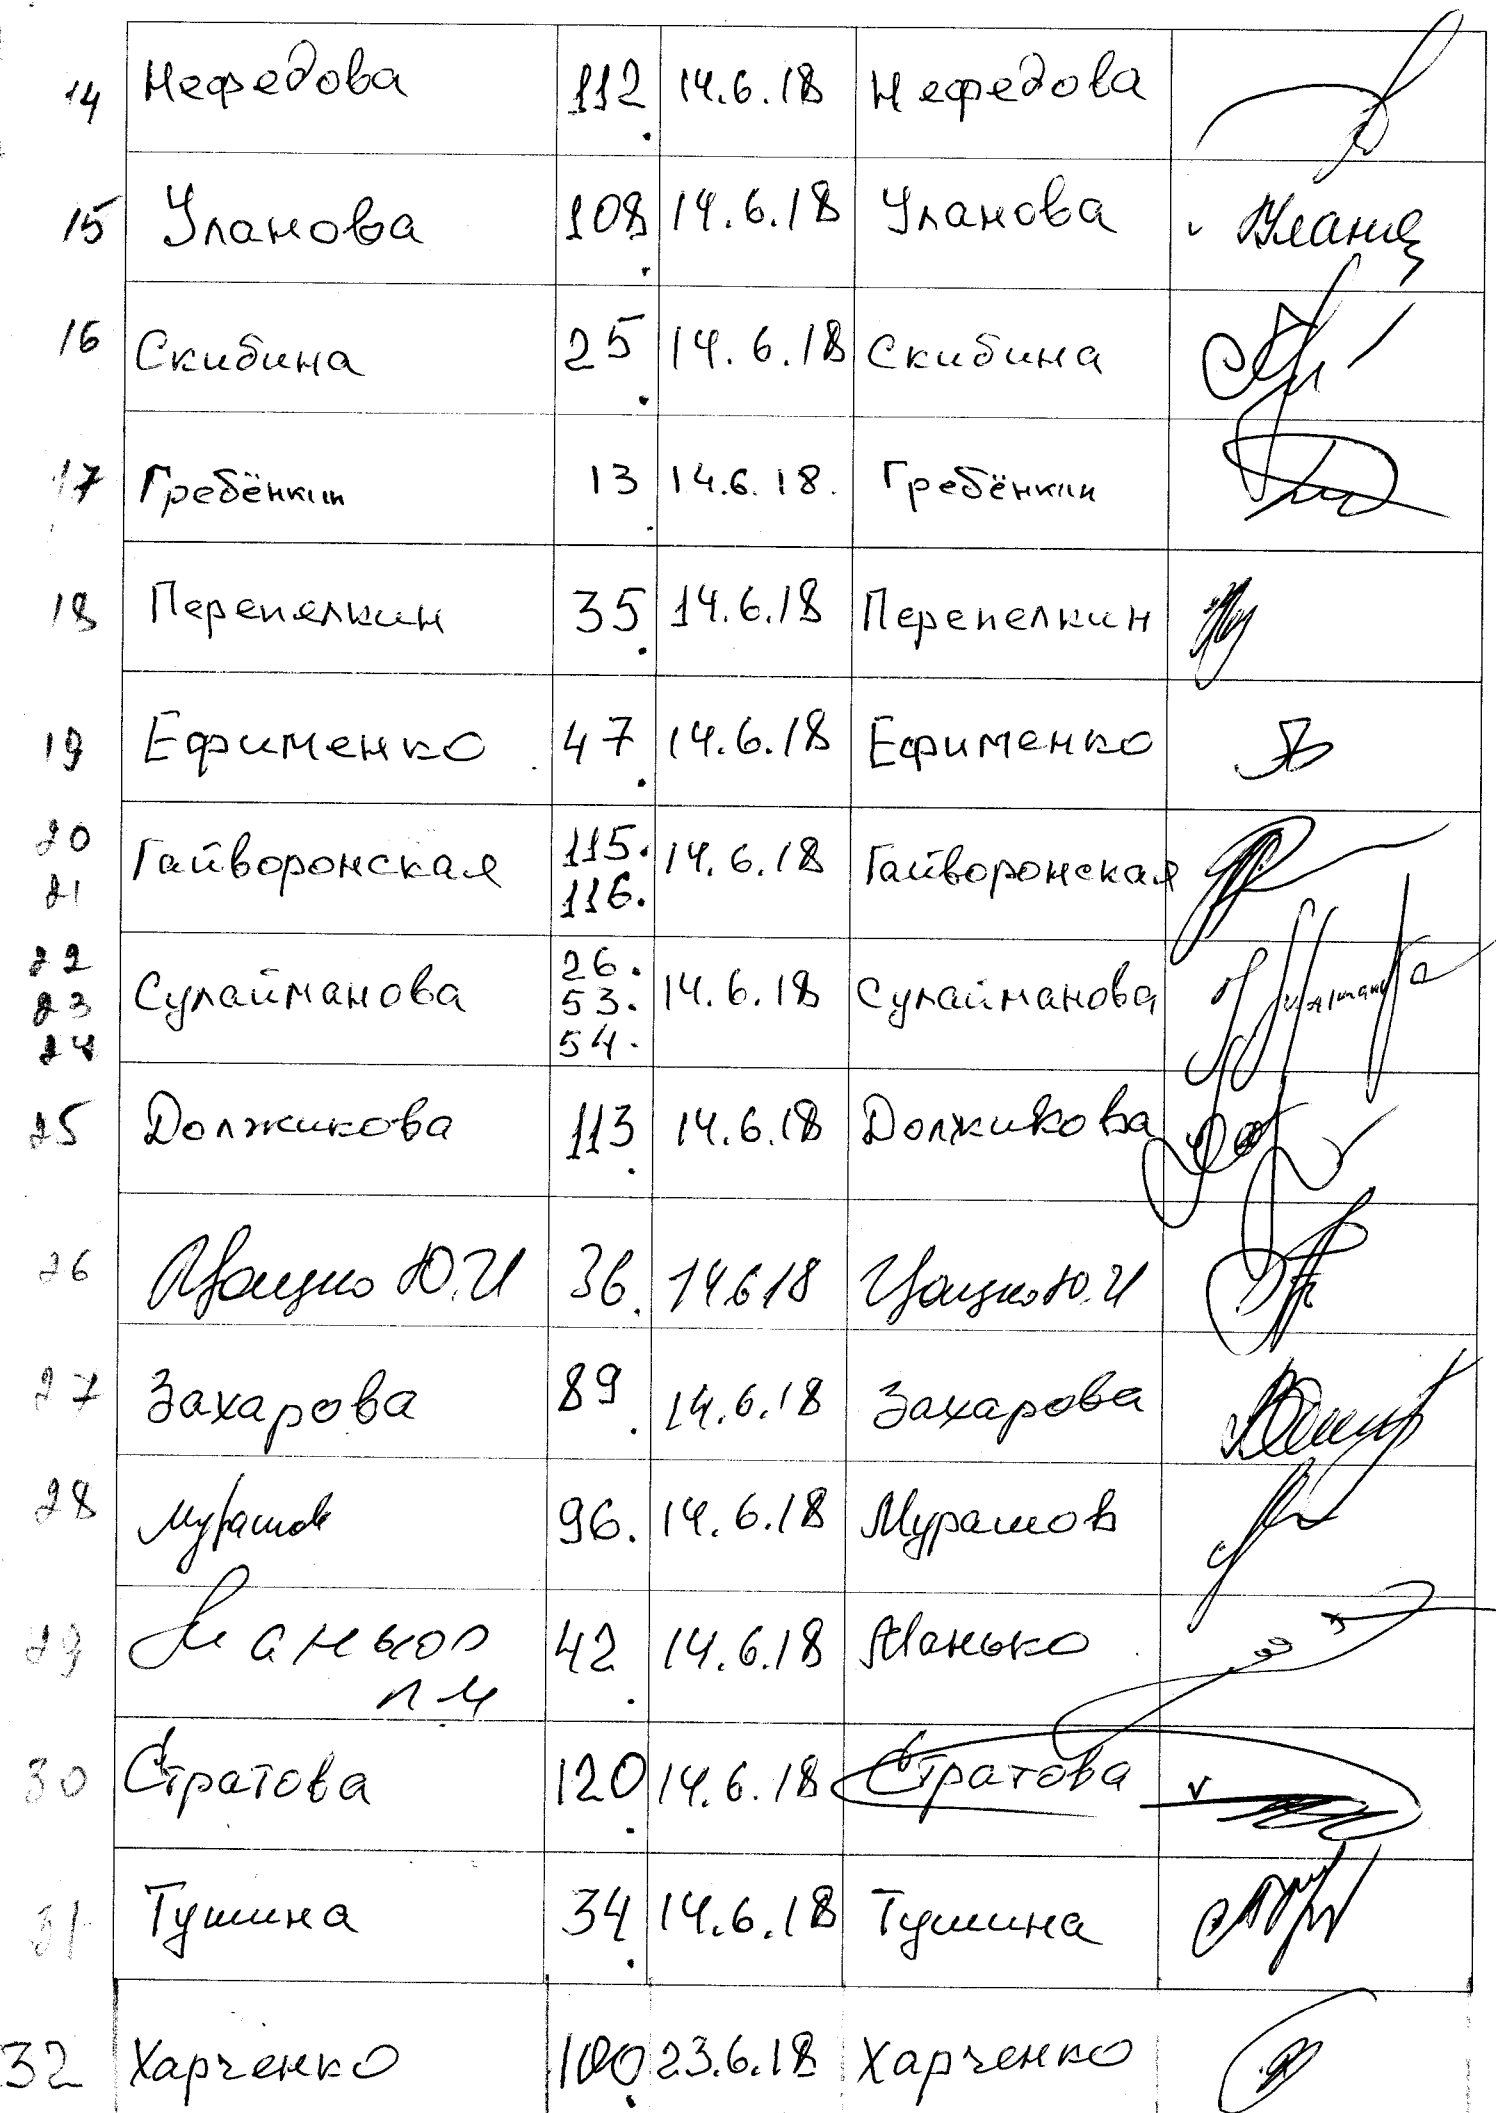 14 Нефедова 112. 14.6.18 Нефедова
15 Уланова 108. 14.6.18 Уланова
16 Скибина 25. 14.6.18 Скибина
17 Гребёнкин 13. 14.6.18. Гребёнкин
18 Перепелкин 35. 14.6.18 Перепелкин
19 Ефименко 47. 14.6.18 Ефименко
20 Гайворонская 115. 14.6.18 Гайворонская
21 116.
22 26.
23 Сулайманова 53. 14.6.18 Сулайманова
24 54.
25 Должикова 113. 14.6.18 Должикова
26 Ю.И 36. 14618 Ю.И
27 Захарова 89. 14.6.18 Захарова
28 Мурашов 96. 14.6.18 Мурашов
29 Манько 42. 14.6.18 Манько
30 Стратова 120. 14.6.18 Стратова
31 Тушина 34. 14.6.18 Тушина
32 Харченко 100. 23.6.18 Харченко